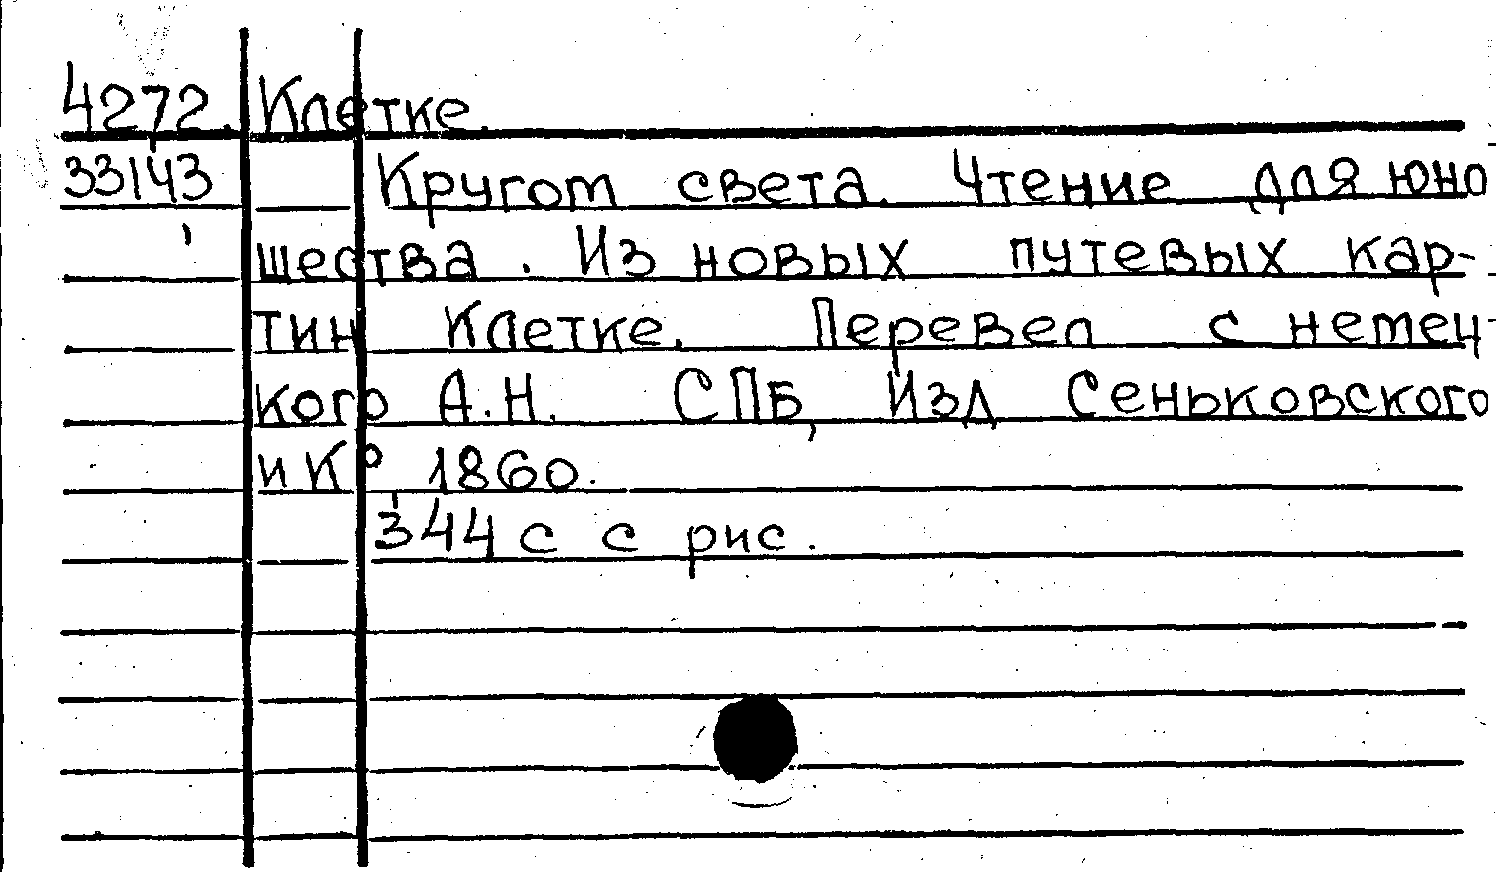 4272. Клетке.
33143 Кругом света. Чтение для юно
шества. Из новых путевых кар-
тин Клетке. Перевел с немец
кого А.Н. СПБ, Изд Сеньковского
и Ко 1860.
344 с с рис.